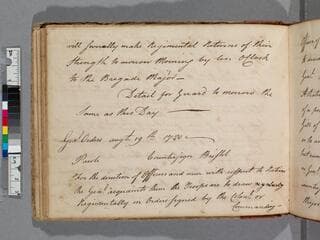 will severally make Regimental Returns of their
Strength to morrow Morning by ten oClock
to the Brigade Major —
Detail for Guard to morrow the
Same as this Day —
Genl Orders augt 19th 1780 —
Parole Countersign Bristol
For the direction of Officers and men with respect to
the Genl acquaints them the Troops are to draw regularly
Regimentally in Orders signed by the Colonl or
Commanding